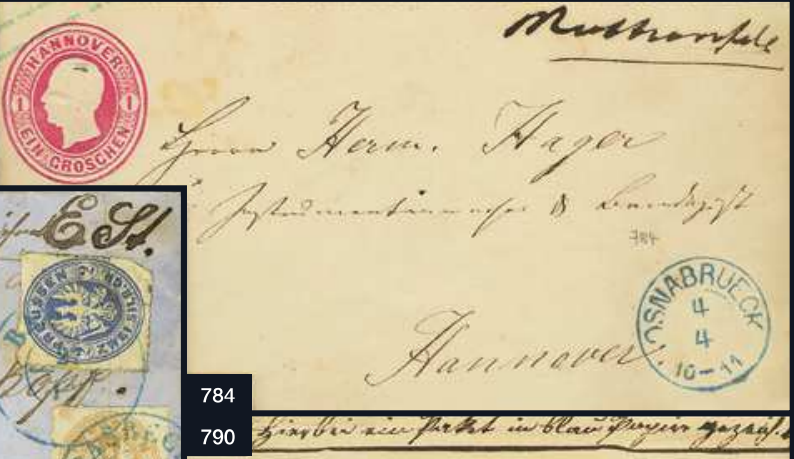 HANNOVER
1 1
EIN GROSCHEN
Herrn Herm. Hager
Instrumentenmacher & Bandagist
784
Hannover.
OSNABRUECK
4
4
10-11
E. St.
PREUSSEN
784
790
Hierbei ein Paket in blau Papier gezeich.